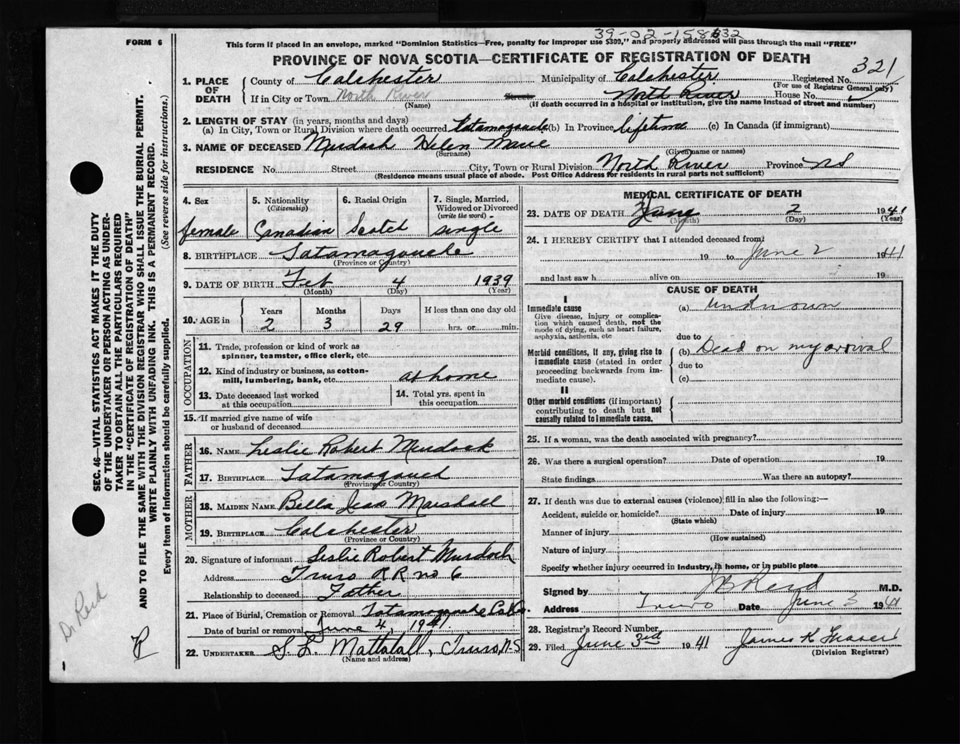 39-02-158632
FORM 6
This form if placed in an envelope, marked "Dominion Statistics—Free, penalty for improper use $300," and properly addressed will pass through the mail "FREE"
PROVINCE OF NOVA SCOTIA—CERTIFICATE OF REGISTRATION OF DEATH
321
1. PLACE OF DEATH
County of Colchester Municipality of Colchester Registered No.
(For use of Registrar General only)
If in City or Town North River (Name) Street North River House No.
(If death occurred in a hospital or institution, give the name instead of street and number)
2. LENGTH OF STAY (in years, months and days)
(a) In City, Town or Rural Division where death occurred Tatamagouche (b) In Province lifetime (c) In Canada (if immigrant)
3. NAME OF DECEASED Murdock Helen Marie
(Surname) (Given name or names)
RESIDENCE No. Street City, Town or Rural Division North River Province NS
(Residence means usual place of abode. Post Office Address for residents in rural parts not sufficient)
4. Sex
female
5. Nationality (Citizenship)
Canadian
6. Racial Origin
Scotch
7. Single, Married, Widowed or Divorced (write the word)
single
8. BIRTHPLACE Tatamagouche
(Province or Country)
9. DATE OF BIRTH Feb 4 1939
(Month) (Day) (Year)
10. AGE in Years Months Days If less than one day old
2 3 29 hrs. or min.
OCCUPATION
11. Trade, profession or kind of work as spinner, teamster, office clerk, etc.
12. Kind of industry or business, as cotton-mill, lumbering, bank, etc. at home
13. Date deceased last worked at this occupation
14. Total yrs. spent in this occupation
15. If married give name of wife or husband of deceased
FATHER
16. NAME Leslie Robert Murdock
17. BIRTHPLACE Tatamagouch
(Province or Country)
MOTHER
18. MAIDEN NAME Bella Jean Marshall
19. BIRTHPLACE Colchester
(Province or Country)
20. Signature of informant Leslie Robert Murdoch
Address Truro R R no 6
Relationship to deceased Father
21. Place of Burial, Cremation or Removal Tatamagouche
Date of burial or removal June 4 1941
22. UNDERTAKER S. L. Mattatall, Truro, N.S
(Name and address)
MEDICAL CERTIFICATE OF DEATH
23. DATE OF DEATH June 2 1941
(Month) (Day) (Year)
24. I HEREBY CERTIFY that I attended deceased from
19 to June 2 1941
and last saw h alive on 19
CAUSE OF DEATH
I
Immediate cause
Give disease, injury or complication which caused death, not the mode of dying, such as heart failure, asphyxia, asthenia, etc
(a) Unknown
due to
Morbid conditions, if any, giving rise to immediate cause (stated in order proceeding backwards from immediate cause).
(b) Dead on my arrival
due to
(c)
II
Other morbid conditions (if important) contributing to death but not causally related to immediate cause.
25. If a woman, was the death associated with pregnancy?
26. Was there a surgical operation? Date of operation 19
State findings Was there an autopsy?
27. If death was due to external causes (violence) fill in also the following:
Accident, suicide or homicide? Date of injury 19
(State which)
Manner of injury
(How sustained)
Nature of injury
Specify whether injury occurred in industry, in home, or in public place
Signed by J B Reid M.D.
Address Truro Date June 3 1941
28. Registrar's Record Number
29. Filed June 3rd 1941 James K Fraser
(Division Registrar)
SEC. 46—VITAL STATISTICS ACT MAKES IT THE DUTY
OF THE UNDERTAKER OR PERSON ACTING AS UNDER-
TAKER TO OBTAIN ALL THE PARTICULARS REQUIRED
IN THE "CERTIFICATE OF REGISTRATION OF DEATH"
AND TO FILE THE SAME WITH THE DIVISION REGISTRAR WHO SHALL ISSUE THE BURIAL PERMIT.
WRITE PLAINLY WITH UNFADING INK. THIS IS A PERMANENT RECORD.
Every item of information should be carefully supplied. (See reverse side for instructions.)
Dr Reid